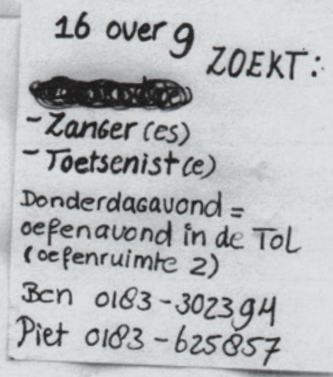 16 over 9
ZOEKT:
- Zanger (es)
- Toetsenist (e)
Donderdagavond =
oefenavond in de TOL
(oefenruimte 2)
Ben 0183-302394
Piet 0183-625857